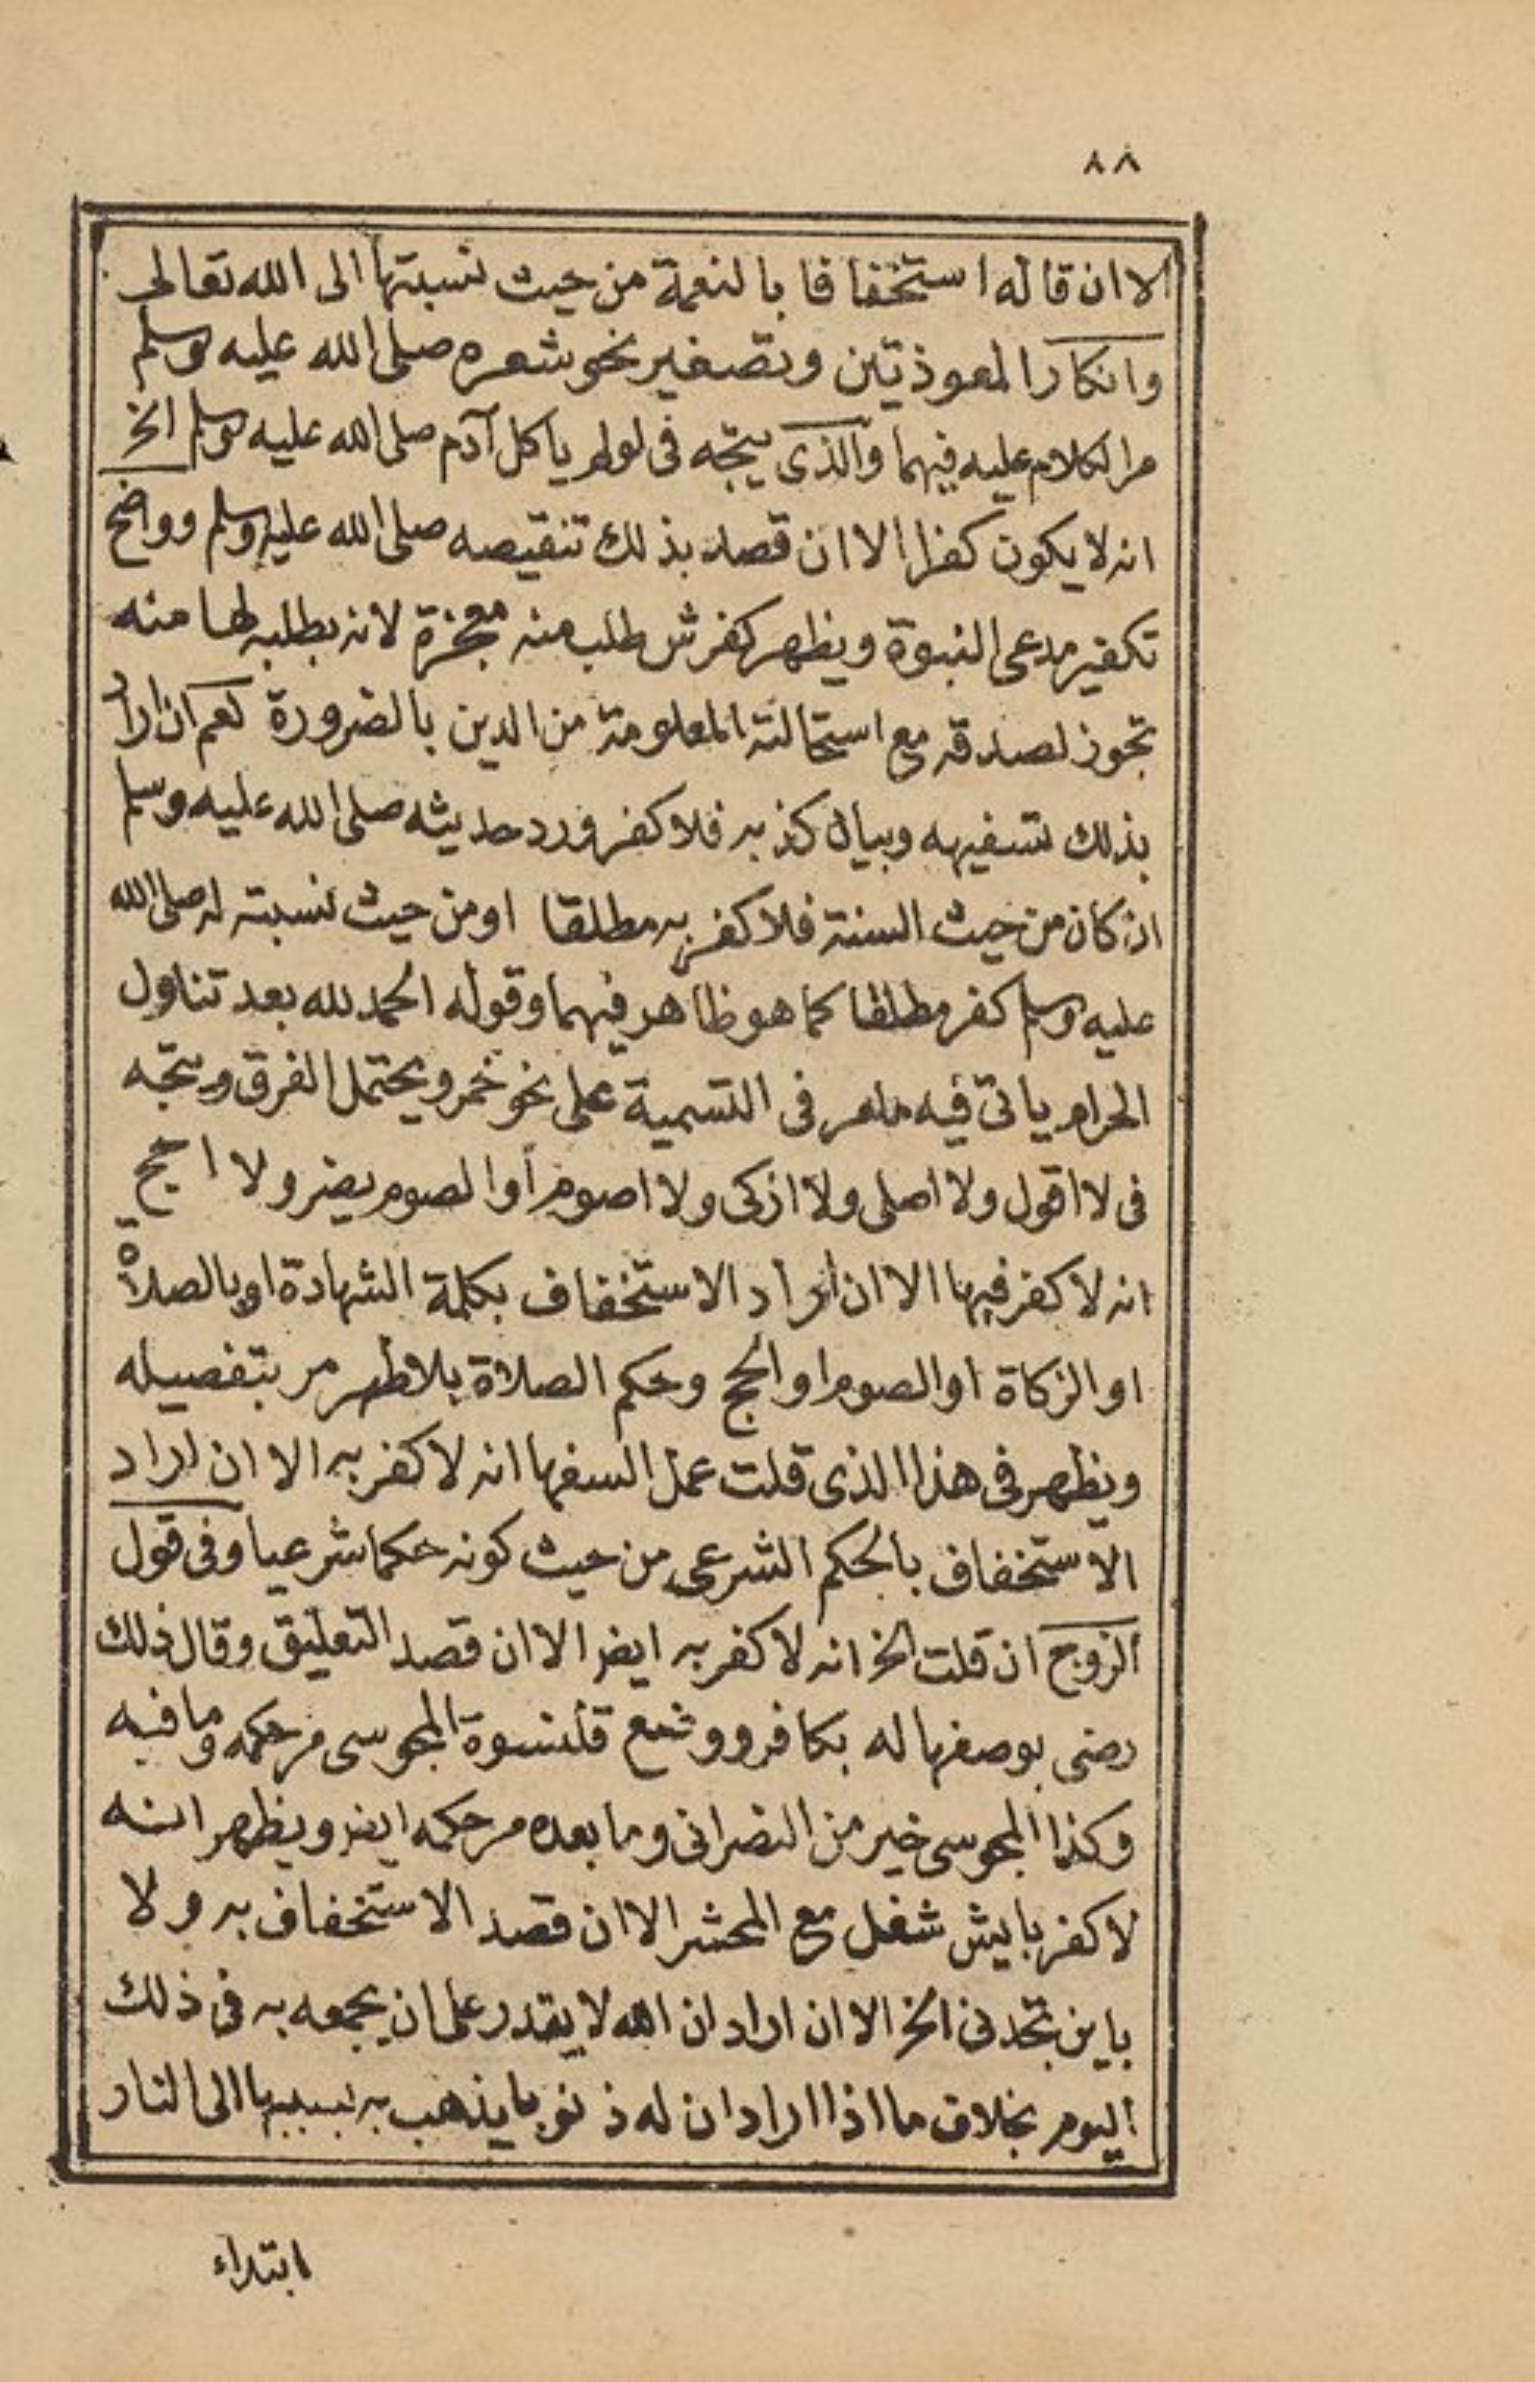 ٨٨
الا ان قاله استخفافا بالنعمة من حيث نسبتها الى الله تعالى
وانكار المعوذتين وتصغير نحو شعره صلى الله عليه وسلم
مر الكلام عليه فيهما والذى يتجه فى لولم ياكل آدم صلى الله عليه وسلم الخ
انه لا يكون كفرا الا ان قصد بذلك تنقيصه صلى الله عليه وسلم وواضح
تكفير مدعى النبوة ويظهر كفر من طلب منه معجزة لانه بطلبه لها منه
تجوز لصدقه مع استحالته المعلومة من الدين بالضرورة نعم ان اراد
بذلك تسفيهه وبيان كذبه فلا كفر ورد حديثه صلى الله عليه وسلم
ان كان من حيث السنة فلا كفر به مطلقا او من حيث نسبته له صلى الله
عليه وسلم كفر مطلقا كما هو ظاهر فيهما وقوله الحمد لله بعد تناول
الحرام ياتى فيه مامر فى التسمية على نحو خمر ويحتمل الفرق ويتجه
فى لا اقول ولا اصلى ولا ازكى ولا اصوم أو الصوم يضر ولا احج
انه لا كفر فيها الا ان اراد الاستخفاف بكلمة الشهادة او بالصلاة
او الزكاة او الصوم او الحج وحكم الصلاة بلا طهر مر بتفصيله
ويظهر فى هذا الذى قلت عمل السفها انه لا كفر به الا ان اراد
الاستخفاف بالحكم الشرعى من حيث كونه حكما شرعيا وفى قول
الزوج ان قلت الخ انه لا كفر به ايض الا ان قصد التعليق وقال ذلك
رضى بوصفها له بكافر ووضع قلنسوة المجوسى مر حكمه وما فيه
وكذا المجوسى خير من النصرانى وما بعده مر حكمه ايض ويظهر انه
لا كفر بايش شغل مع المحشر الا ان قصد الاستخفاف به ولا
باين تجدنى الخ الا ان اراد ان الله لا يقدر على ان يجمعه به فى ذلك
اليوم بخلاف ما اذا اراد ان له ذنوبا يذهب به بسببها الى النار
ابتداء